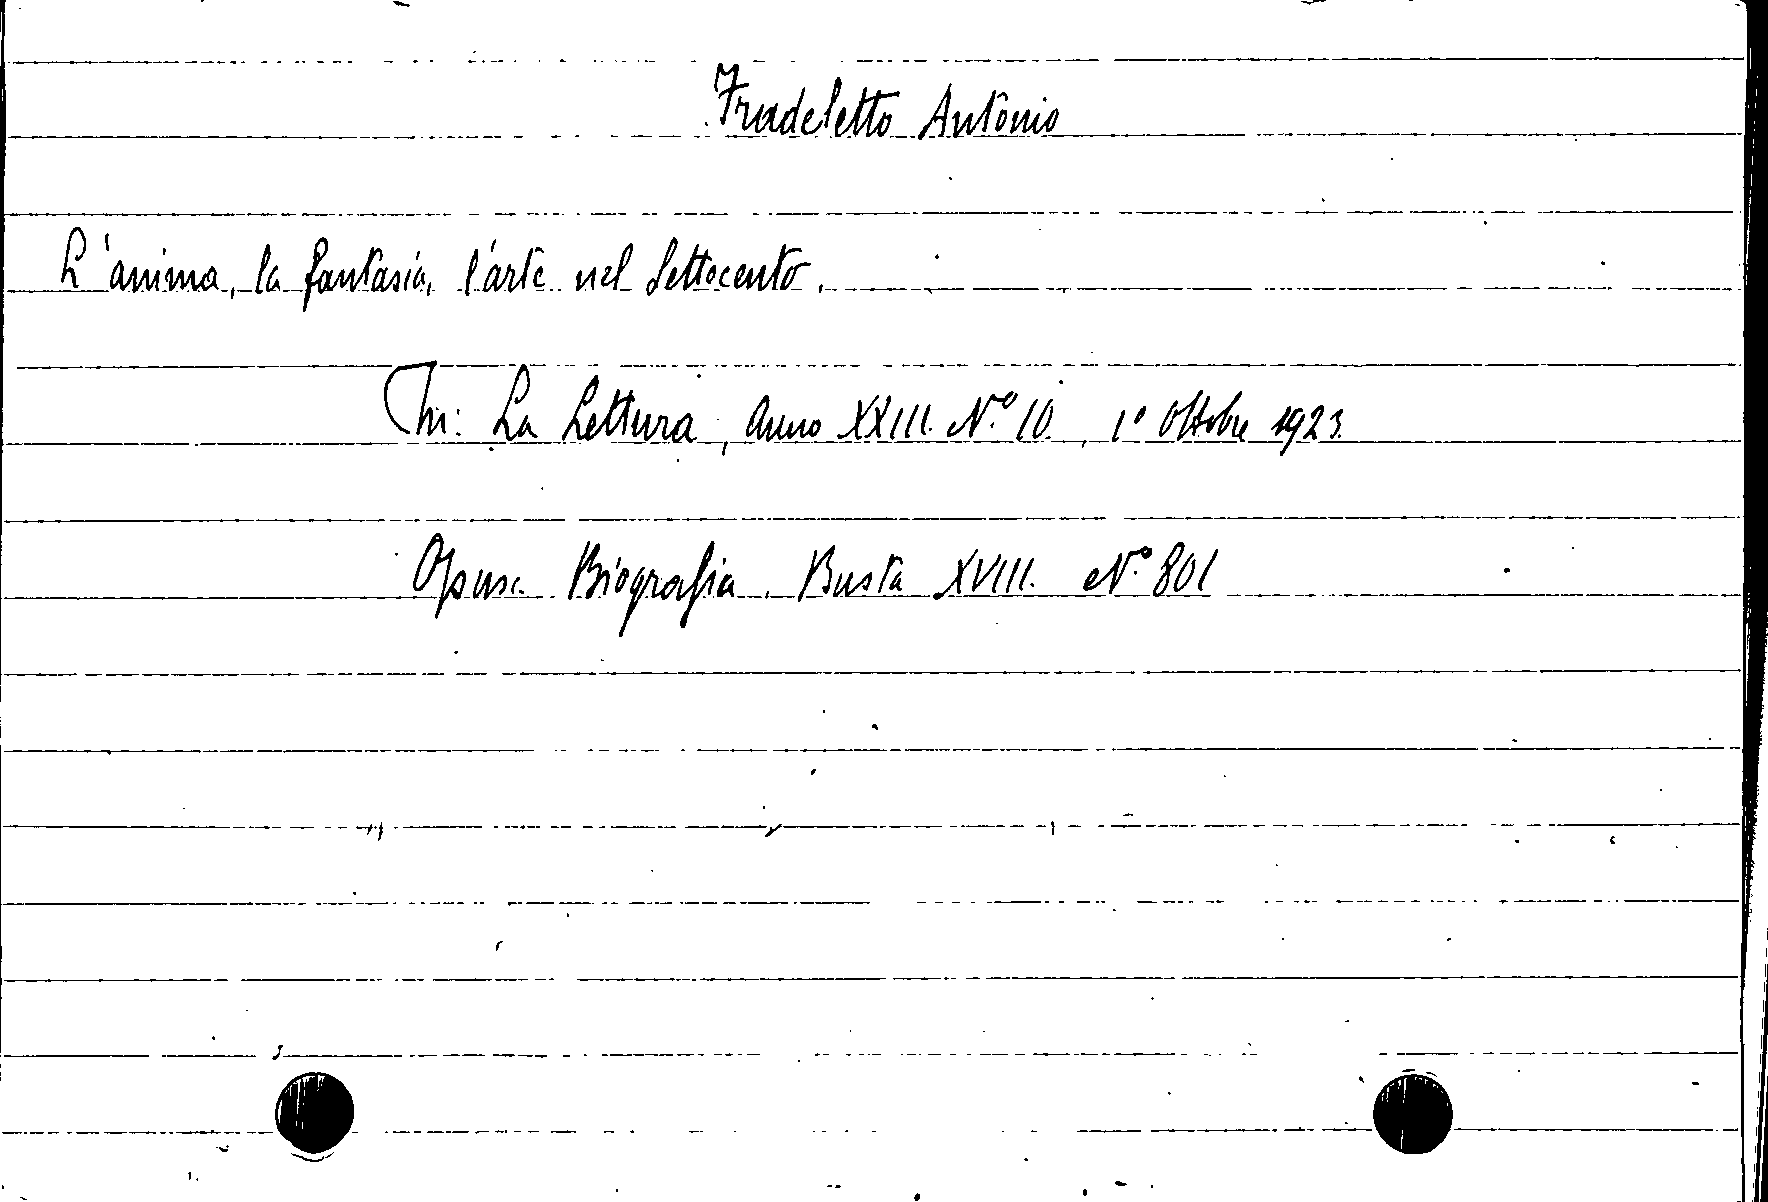 Fradeletto Antonio
L'anima, la fantasia, l'arte nel Settecento.
In: La Lettura, Anno XXIII. N.º 10., 1º Ottobre 1923.
Opusc. Biografia. Busta XVIII. N.º 801